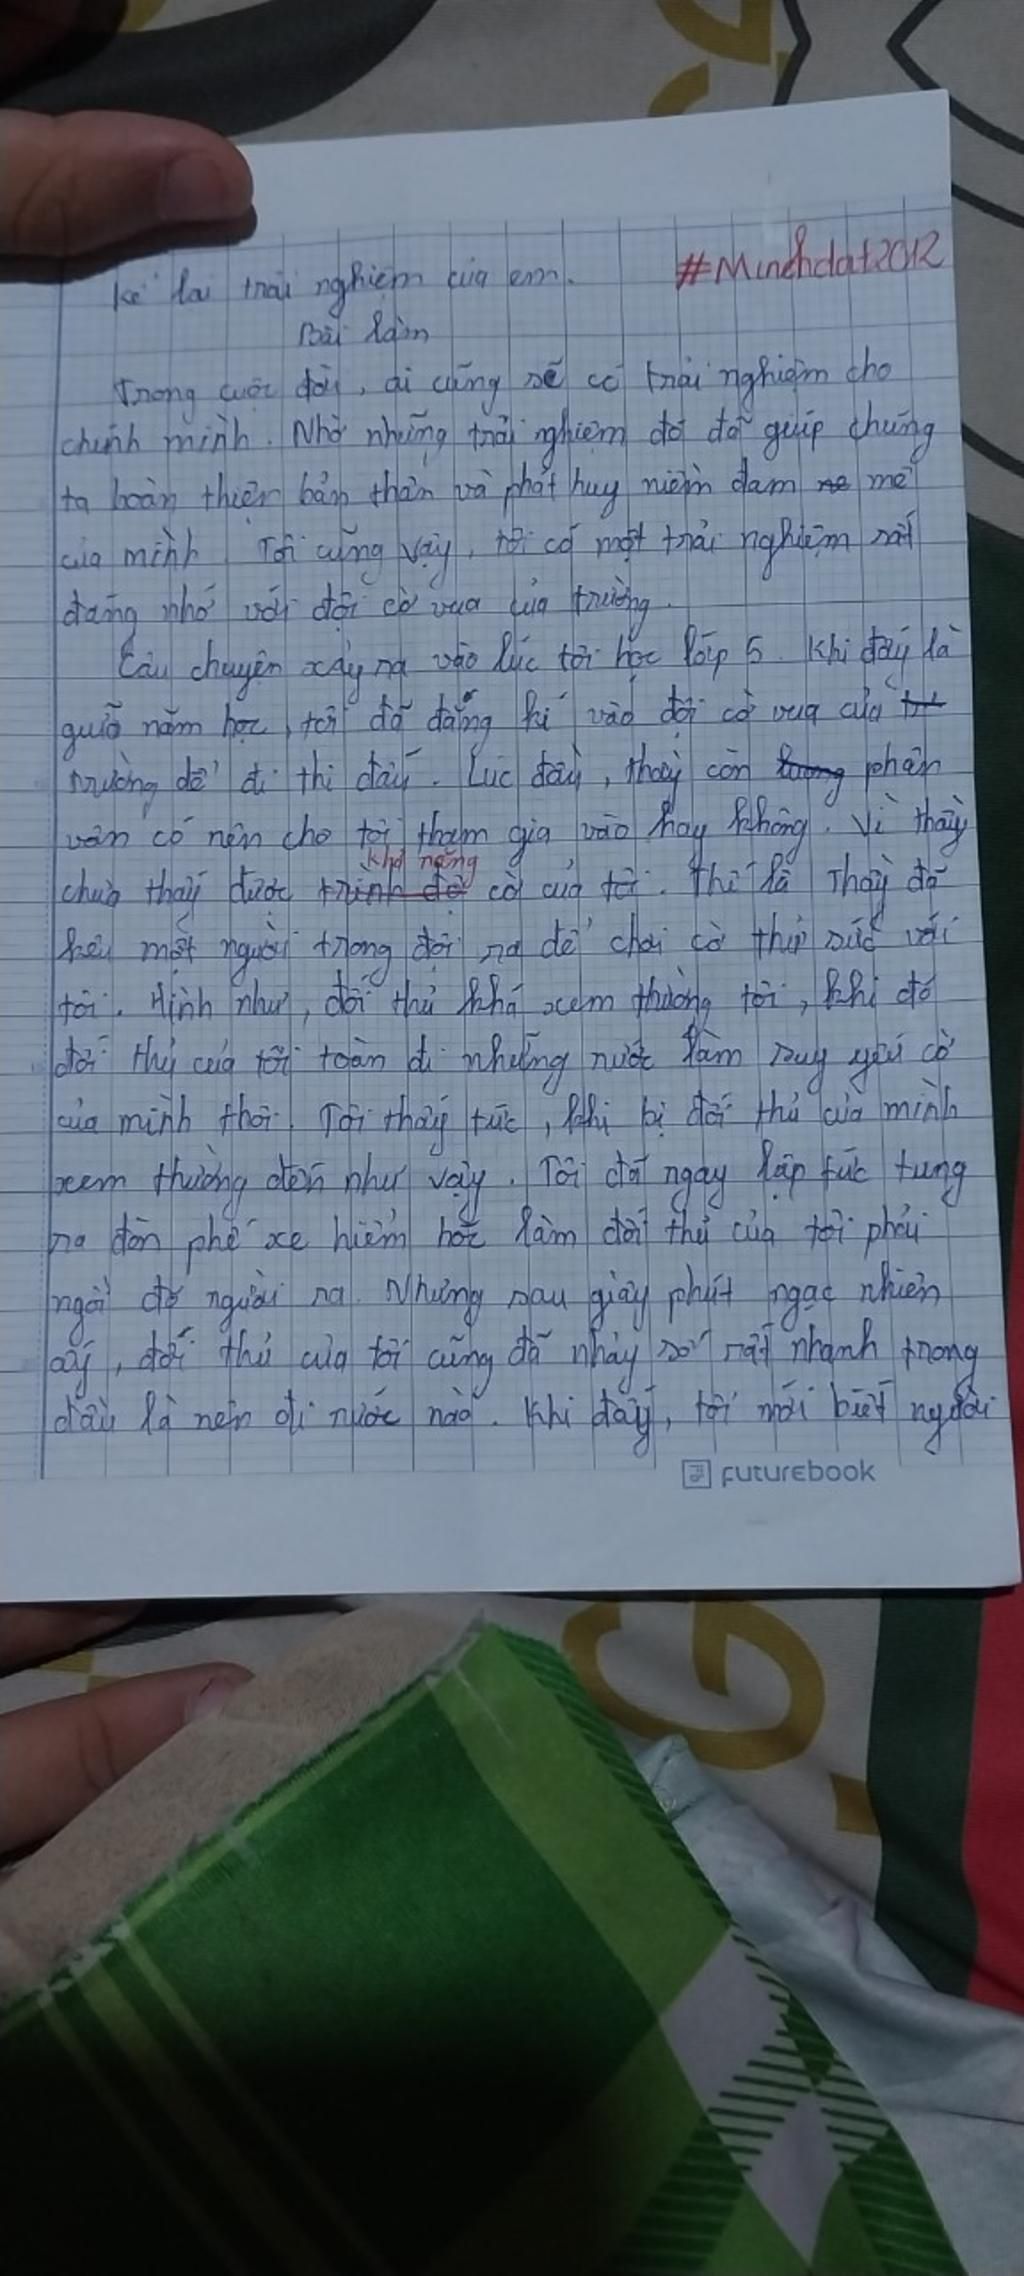 Kể lại trải nghiệm của em. #Minhdat2012
Bài làm
Trong cuộc đời, ai cũng sẽ có trải nghiệm cho
chính mình. Nhờ những trải nghiệm đó đã giúp chúng
ta hoàn thiện bản thân và phát huy niềm đam mê
của mình. Tôi cũng vậy, tôi có một trải nghiệm rất
đáng nhớ với đội cờ vua của trường.
Câu chuyện xảy ra vào lúc tôi học lớp 5. Khi đấy là
giữa năm học, tôi đã đăng kí vào đội cờ vua của
trường để đi thi đấu. Lúc đấy, thầy còn phân
vân có nên cho tôi tham gia vào hay không. Vì thầy
khả năng
chưa thấy được trình độ cờ của tôi. Thế là Thầy đã
kêu một người trong đội ra để chơi cờ thử sức với
tôi. Hình như, đối thủ khá xem thường tôi, khi đó
đối thủ của tôi toàn đi những nước làm suy yếu cờ
của mình thôi. Tôi thấy tức, khi bị đối thủ của mình
xem thường đến như vậy. Tôi đã ngay lập tức tung
ra đòn phế xe hiểm hóc làm đối thủ của tôi phải
ngồi đớ người ra. Nhưng sau giây phút ngạc nhiên
ấy, đối thủ của tôi cũng đã nhảy số rất nhanh trong
đầu là nên đi nước nào. Khi đấy, tôi mới biết người
FUTUREBOOK